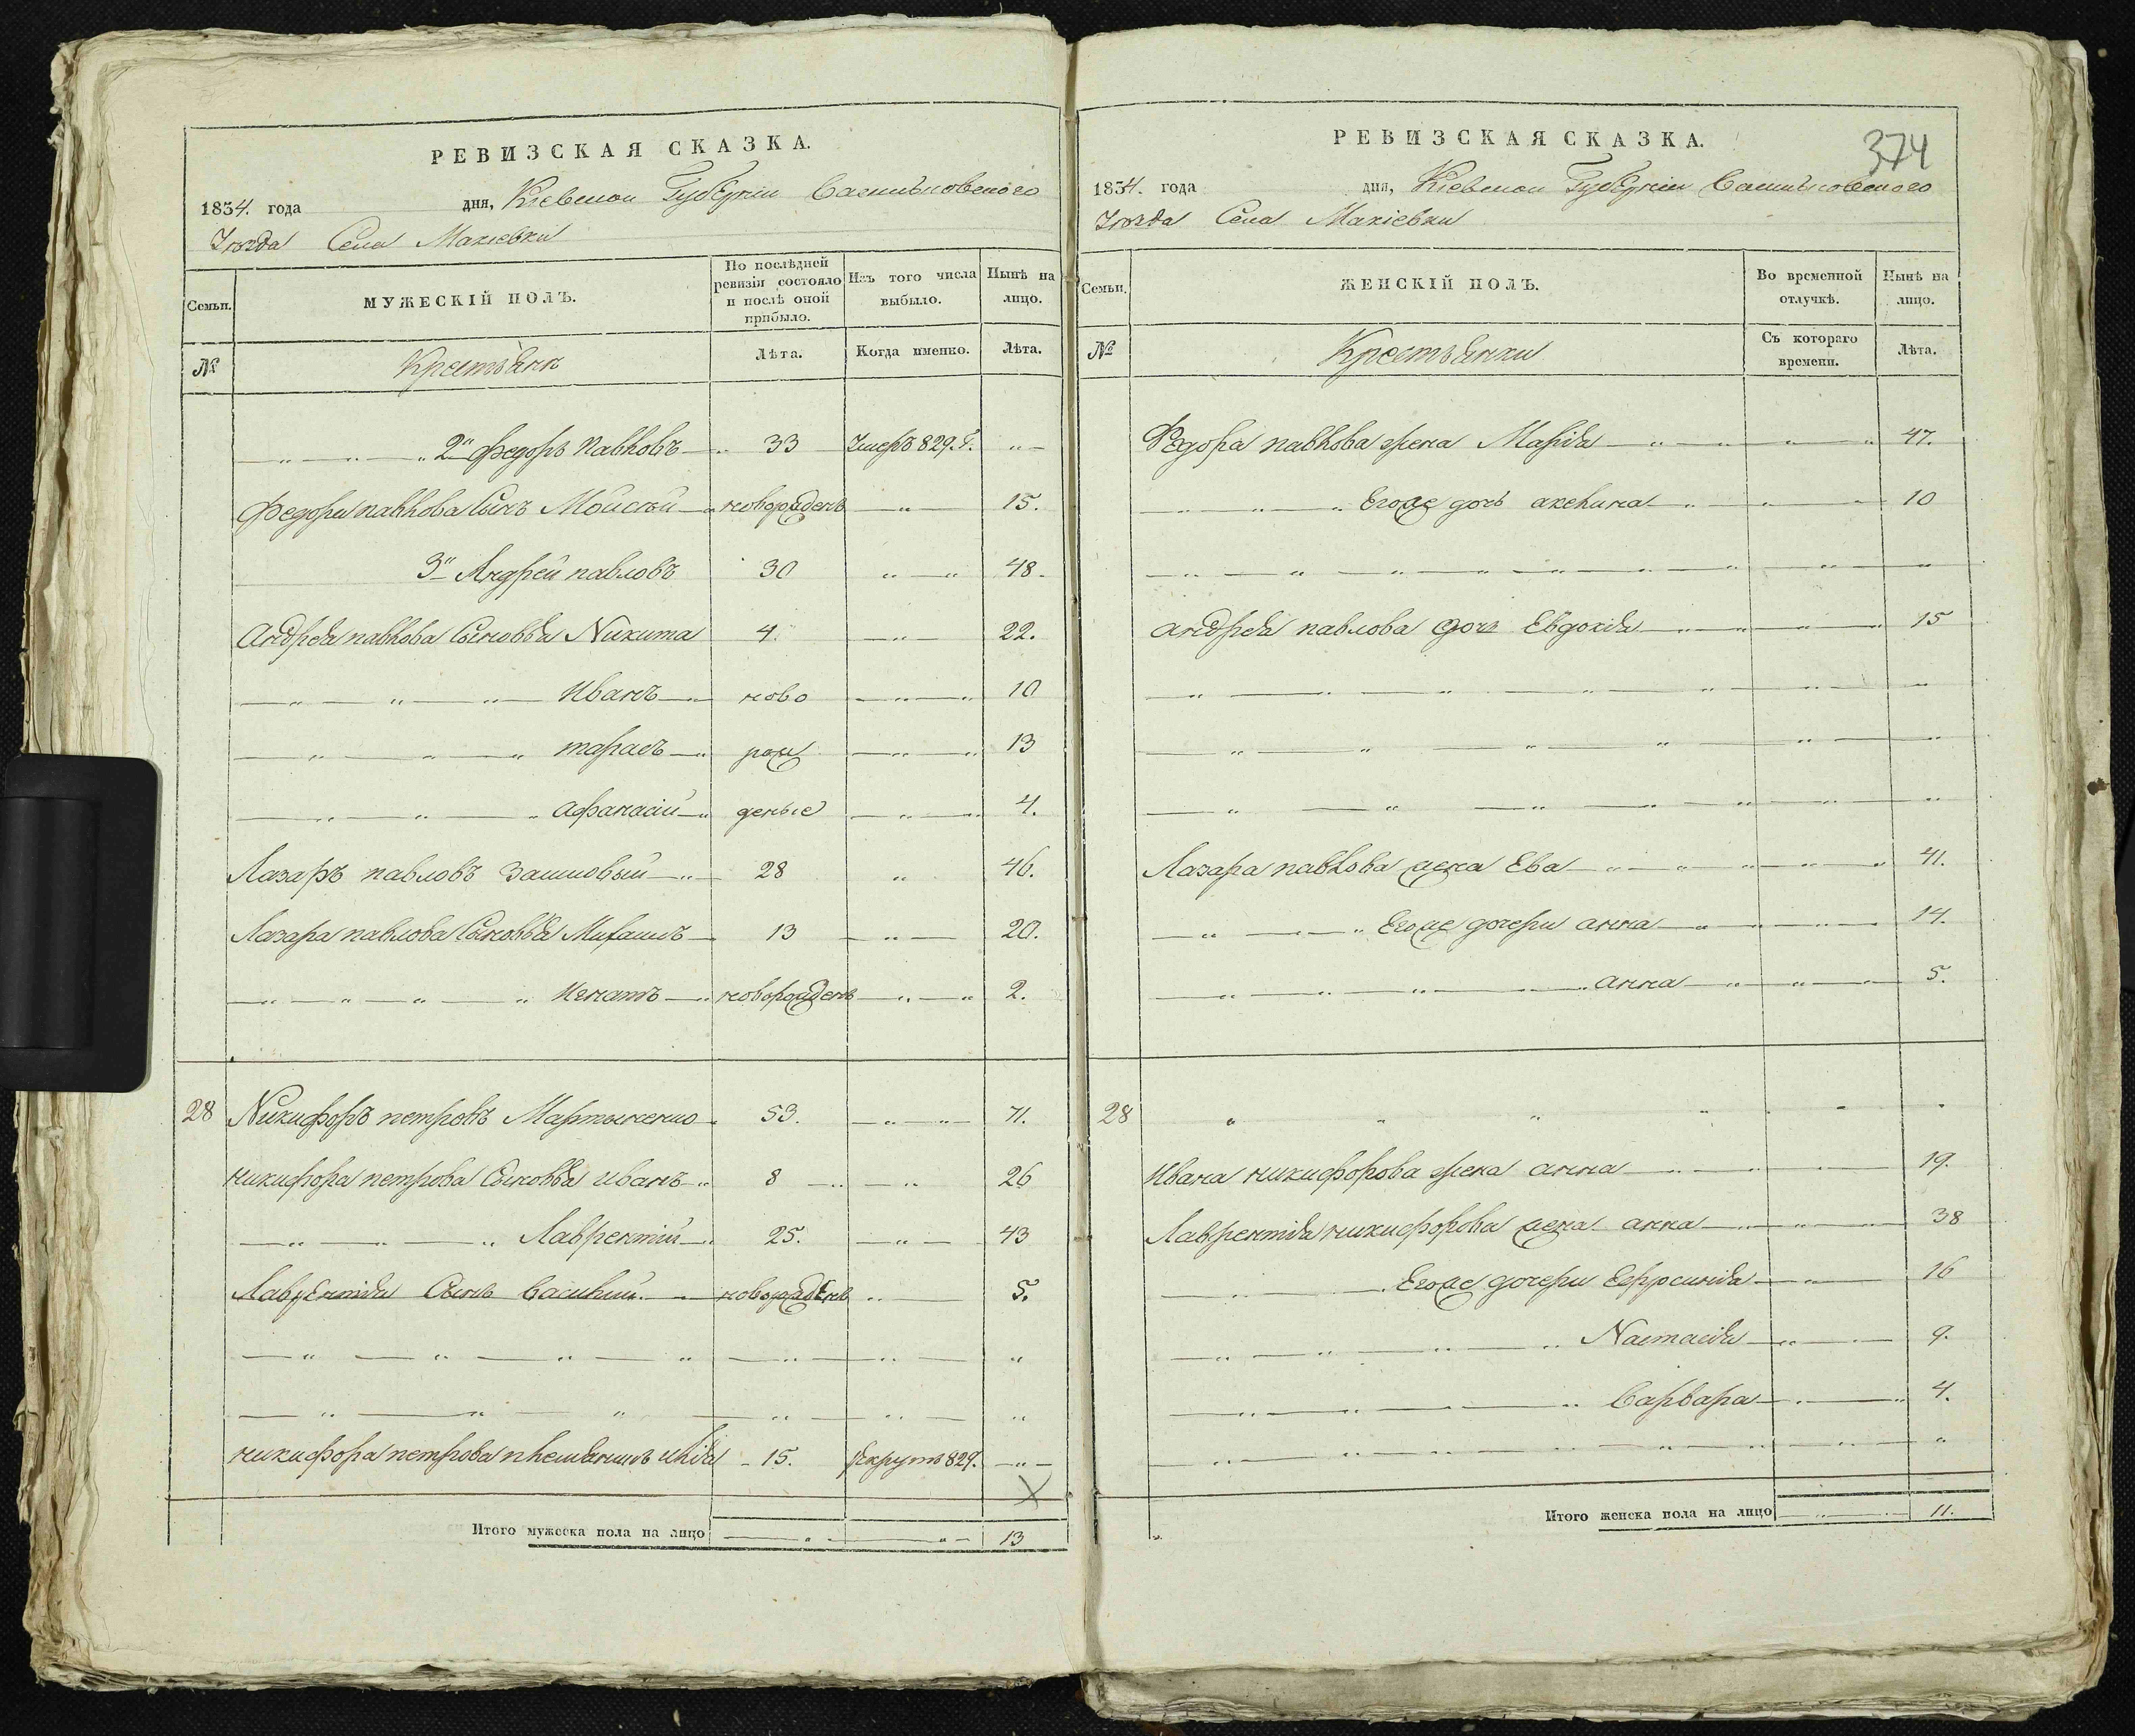 РЕВИЗСКАЯ СКАЗКА.
1834. года дня, Кіевской Губерніи Васильковского
Уѣзда Села Макіевки
Семьи. МУЖЕСКІЙ ПОЛЪ. По послѣдней ревизіи состояло и послѣ оной прибыло. Изъ того числа выбыло. Нынѣ на лицо.
№ Крестьянъ Лѣта. Когда именно. Лѣта.
2й Федоръ Павловъ 33 Умеръ 829. Г.
Федора павлова Сынъ Мойсей новорожденъ 15.
3й Андрей павловъ 30 48.
Андрея павлова Сыновья Никита 4. 22.
Иванъ ново 10
тарасъ рож 13
афанасій деные 4.
Лазаръ павловъ 28 46.
Лазара павлова Сыновья Михаилъ 13 20.
Игнатъ новорожденъ 2.
28 Никифоръ петровъ Мартыненко 53. 71.
никифора петрова Сыновья иванъ 8 26
Лаврентій 25. 43
Лаврентія Сынъ василий новорожденъ 5.
никифора петрова племянникъ илія 15. рекрутъ 829.
Итого мужеска пола на лицо 13
374
РЕВИЗСКАЯ СКАЗКА.
1834. года дня, Кіевской Губерніи Васильковского
Уѣзда Села Макіевки
Семьи. ЖЕНСКІЙ ПОЛЪ. Во временной отлучкѣ. Нынѣ на лицо.
№ Крестьянки Съ котораго времени. Лѣта.
Федора павлова жена Марія 47.
Егоже дочь акелина 10
андрея павлова дочь Евдокія 15
Лазара павлова жена Ева 41.
Егоже дочери анна 14.
анна 5.
28
Ивана никифорова жена анна 19.
Лаврентія никифорова жена анна 38
Егоже дочери Ефросинія 16
Настасія 9.
Варвара 4.
Итого женска пола на лицо 11.